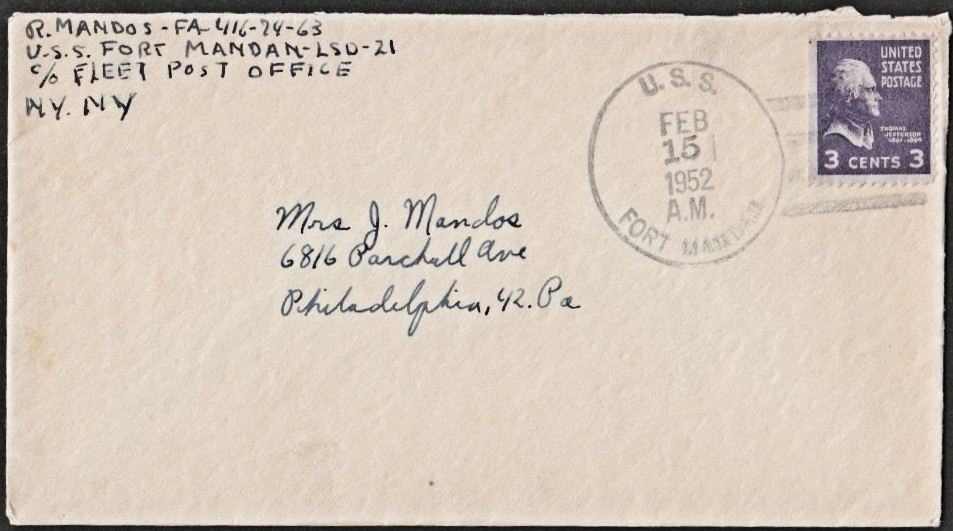 R. MANDOS - FA - 416-74-63
U.S.S. FORT MANDAN - LSD - 21
c/o FLEET POST OFFICE
N.Y. NY
U.S.S.
FEB
15
1952
A.M.
FORT MANDAN
UNITED
STATES
POSTAGE
THOMAS
JEFFERSON
1801-1809
3 CENTS 3
Mrs J. Mandos
6816 Parchall Ave
Philadelphia, 42. Pa